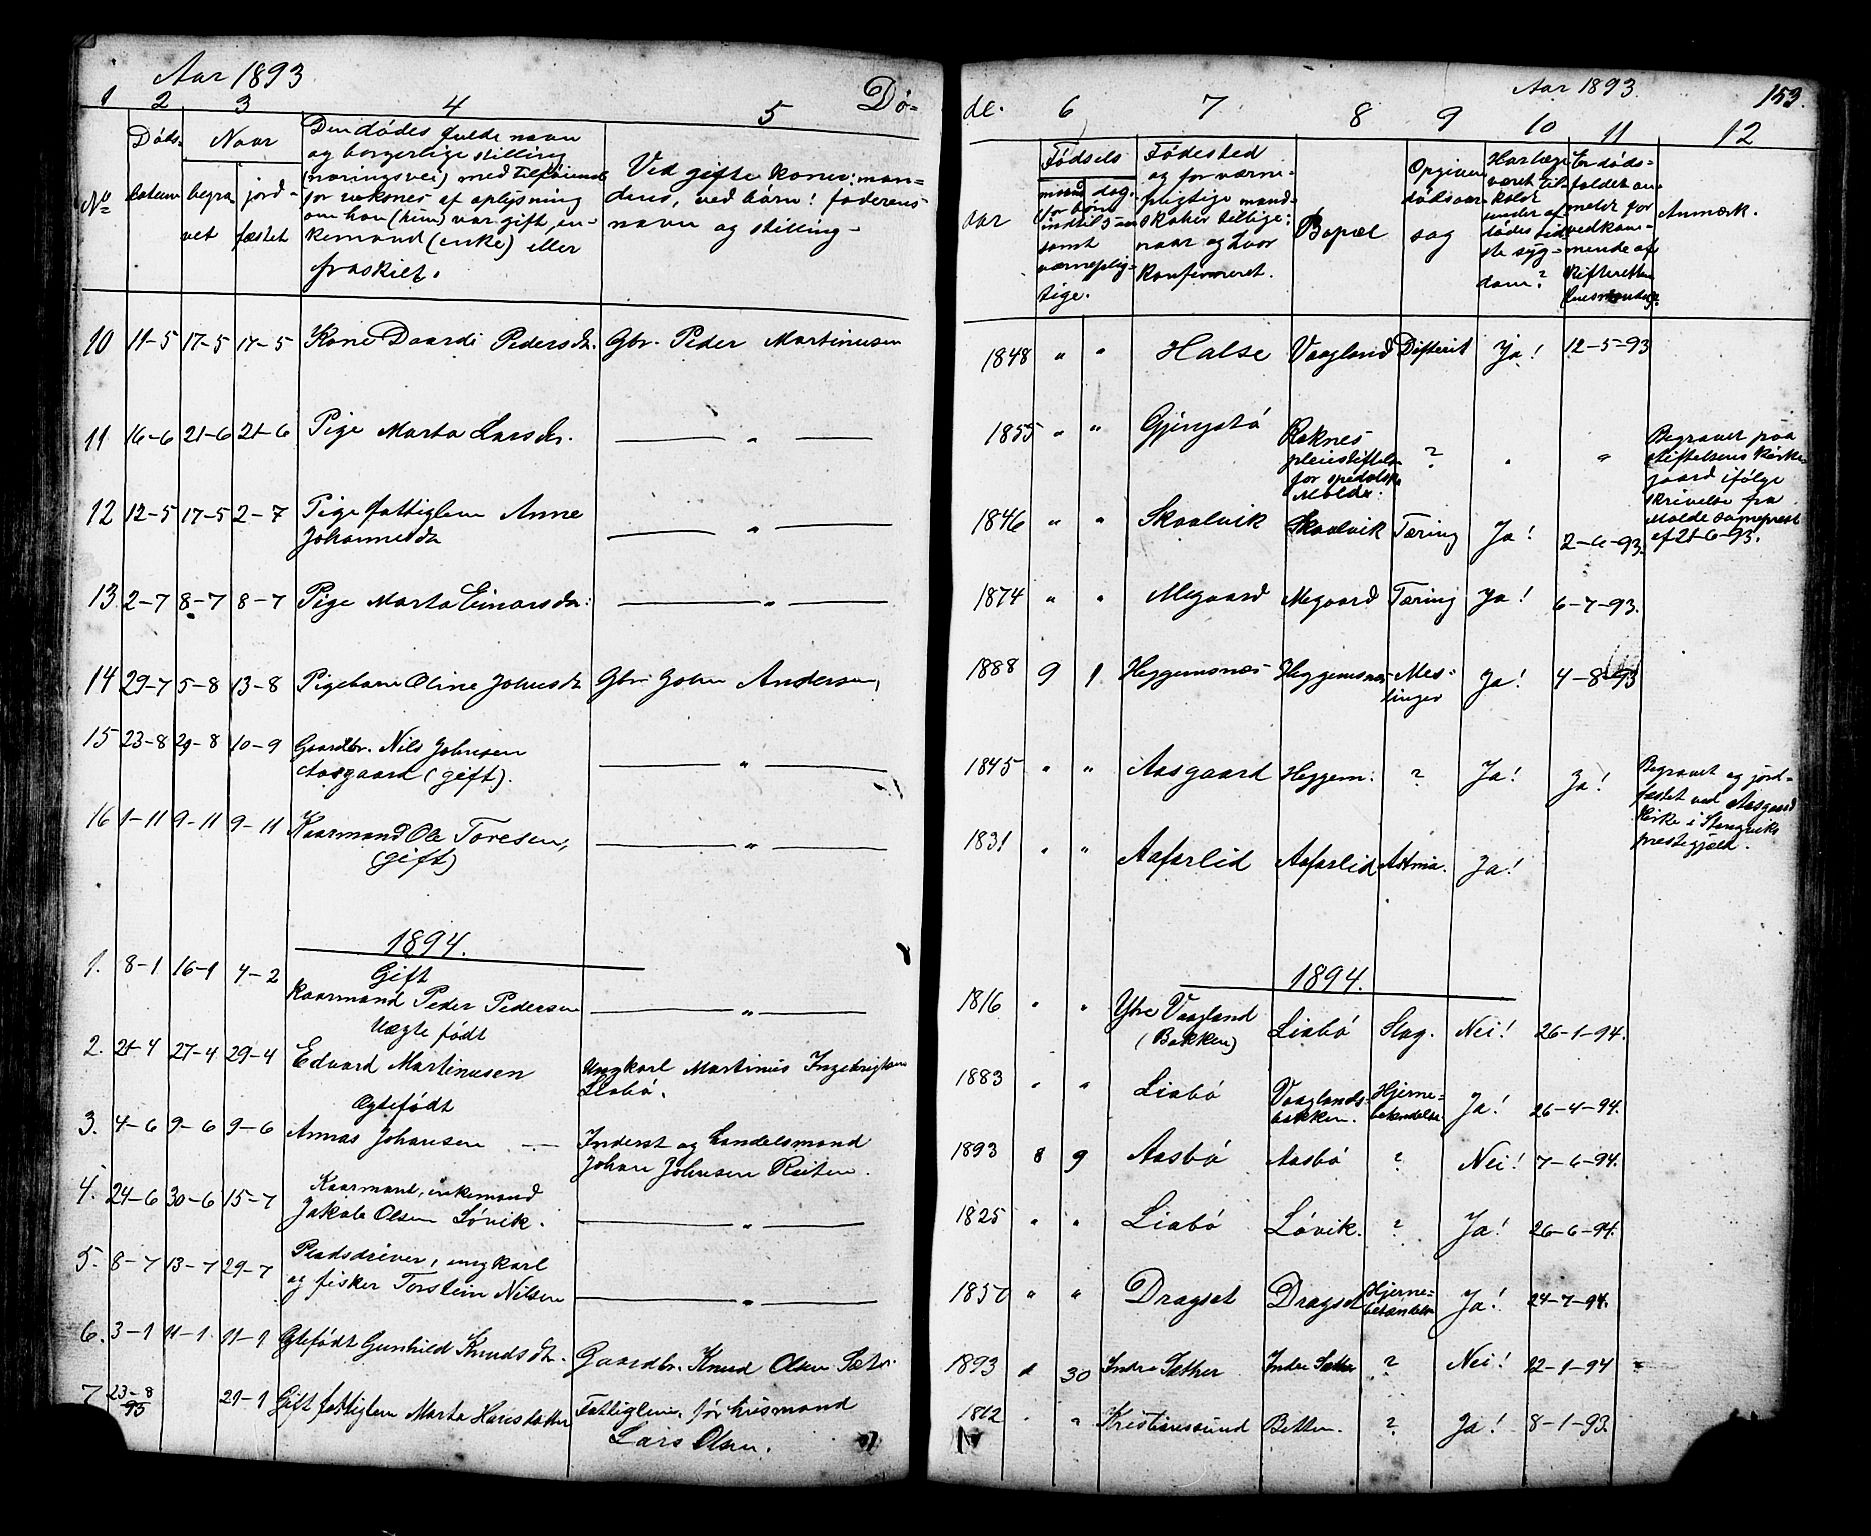 Aar 1893
Dø-
1 2 3 4 5
No
Døds-
datum
Naar
begra-
vet
jord-
fæstet
Den dødes fulde navn
og borgerlige stilling
(næringsvei) med tilføiende
for voksne af oplysning
om han (hun) var gift, en-
kemand (enke) eller
fraskilt.
Ved gifte koner: man-
dens, ved børn: faderens
navn og stilling.
10 11-5 17-5 17-5 Kone Daardi Pedersdr. Gbr. Peder Martinusen
11 16-6 21-6 21-6 Pige Marta Larsdr. — „ —
12 12-5 17-5 2-7 Pige fattiglem Anne
Johannesdr. — „ —
13 2-7 8-7 8-7 Pige Marta Einarsdr. — „ —
14 29-7 5-8 13-8 Pigebarn Oline Johnsdr. Gbr. John Andersen
15 23-8 29-8 10-9 Gaardbr. Nils Johnsen
Aasgaard (gift). — „ —
16 1-11 9-11 9-11 Kaarmand Ole Toresen,
(gift) — „ —
1894.
1. 8-1 16-1 4-2 Gift
Kaarmand Peder Pedersen — „ —
2. 21-4 27-4 29-4 Uægte født
Edvard Martinusen Ungkarl Martinus Ingebrigtsen
Liabø.
3. 4-6 9-6 9-6 Ægtefødt
Annas Johansen — Inderst og Handelsmand
Johan Johnsen Reiten.
4. 24-6 30-6 15-7 Kaarmand, enkemand
Jakob Olsen Løvik. — „ —
5. 8-7 13-7 29-7 Pladsdriver, ungkarl
og fisker Torstein Nilsen — „ —
6. 3-1 11-1 11-1 Ægtefødt Gunhild Knudsdtr. Gaardbr. Knud Olsen Sæter
7 23-8
93 21-1 Gift fattiglem Marta Hansdatter Fattiglem, før husmand
Lars Olsen.
de. Aar 1893 153.
6 7 8 9 10 11 12
aar
Fødsels
maaned dag.
for børn
indtil 5 aar
samt
værneplig-
tige.
Fødested
og for værne-
pligtige mand-
skaber tillige:
naar og hvor
konfirmeret.
Bopæl
Opgiven
dødsaar-
sag
Har læge
været til-
kaldt
under af-
dødes sid-
ste syg-
dom?
Er døds-
faldet an-
meldt for
vedkom-
mende af
skifteretten
(lensmanden)
Anmærk.
1848 „ „ Halse Vaagland Difterit Ja! 12-5-93
1855 „ „ Gjengstø Reknes
pleiestiftelse
for spedalske
Molde. ? „ „ Begravet paa
stiftelsens kirke-
gaard ifølge
skrivelse fra
Molde sogneprest
af 21-6-93.
1846 „ „ Skaalvik Skaalvik Tæring Ja! 2-6-93.
1874 „ „ Megaard Megaard Tæring Ja! 6-7-93.
1888 9 1 Heggemsnæs Heggemsnæs Mes-
linger Ja! 4-8-93
1845 „ „ Aasgaard Heggem. ? Ja! Ja! Begravet og jord-
fæstet ved Aasgaard
kirke i Stangviks
prestegjæld.
1831 „ „ Aafarlid Aafarlid Astma. Ja!
1894.
1816 „ „ Ytre Vaagland
(Bakken) Liabø Slag. Nei! 26-1-94.
1883 „ „ Liabø Vaaglands-
bakken. Hjerne-
betændelse Ja! 26-4-94.
1893 8 9 Aasbø Aasbø ? Nei! 7-6-94.
1825 „ „ Liabø Løvik. ? Ja! 26-6-94.
1850 „ „ Dragset Dragset Hjerne-
betændelse Ja! 24-7-94.
1893 30 Indre Sæther Indre Sæther ? Nei! 22-1-94
1812 „ „ Kristianssund Betten. ? Ja! 8-1-93.